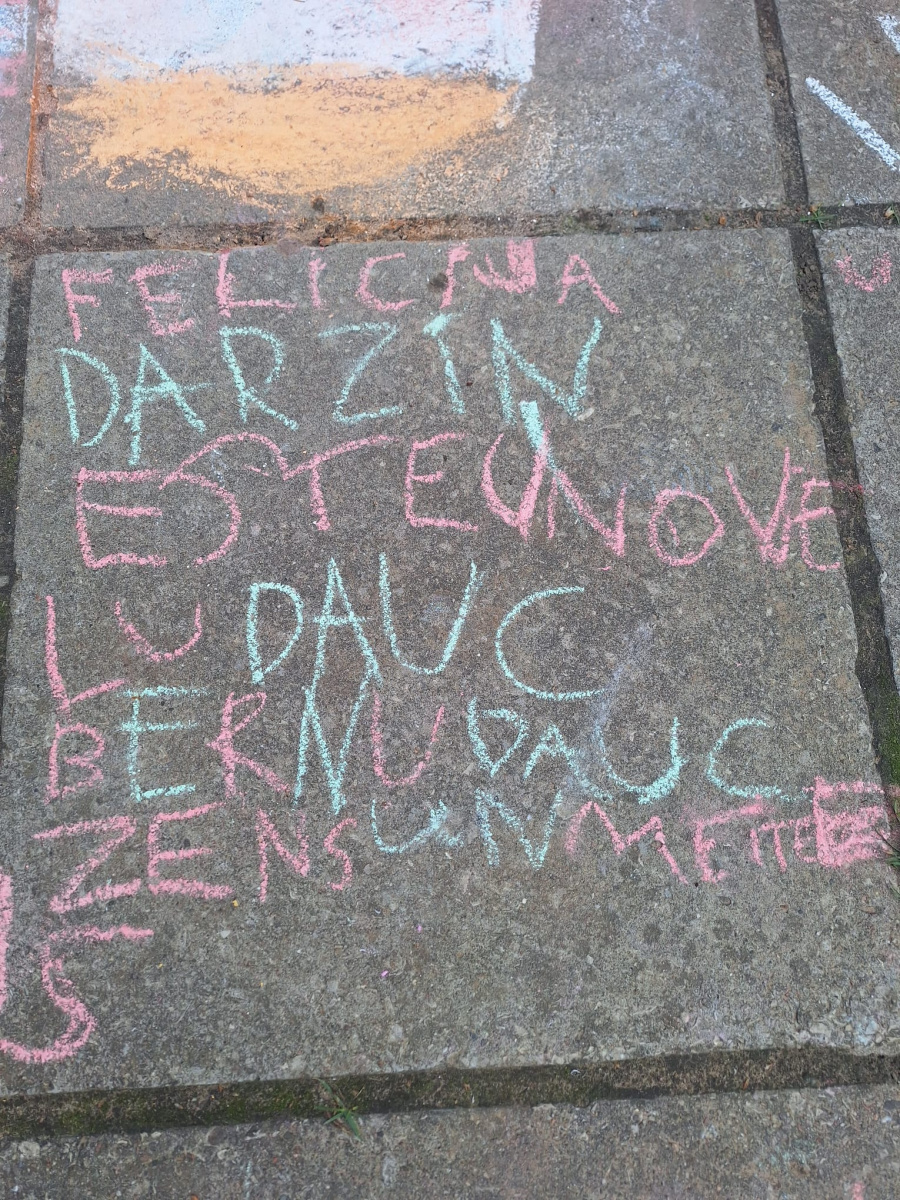 FELICNA
DARZIN
ESTEUNNOVE
LU DAUC
BERNU DAUC
ZENS UN METTEE
5